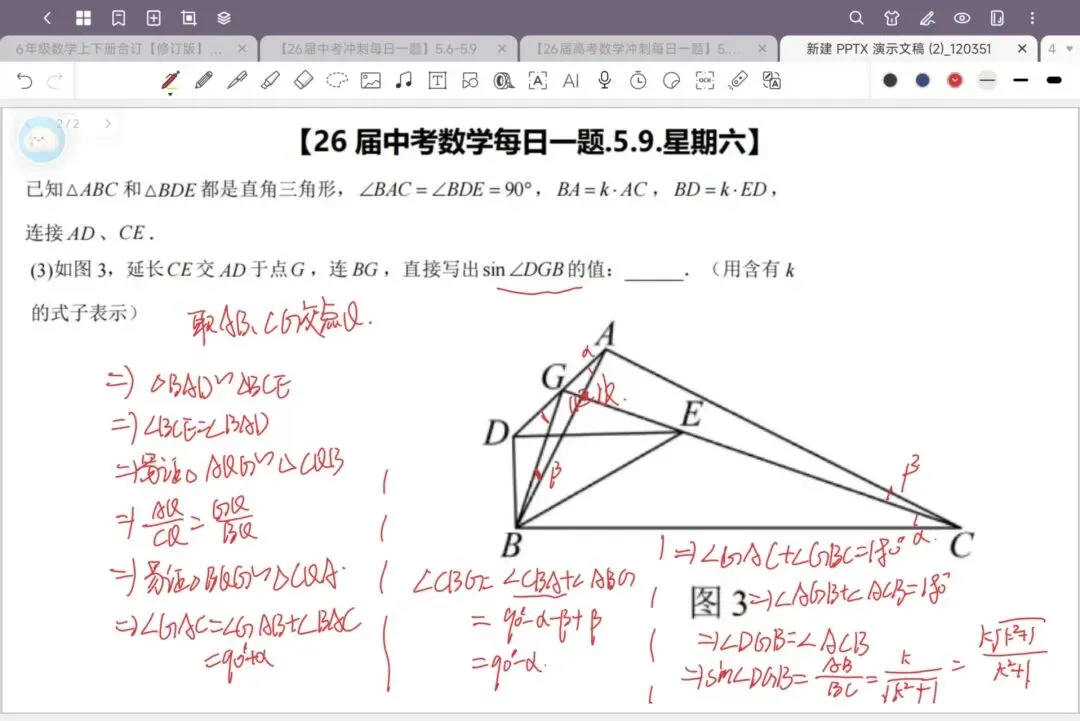 6年级数学上下册合订【修订版】...
【26届中考冲刺每日一题】5.6-5.9
【26届高考数学冲刺每日一题】5....
新建 PPTX 演示文稿 (2)_120351
4
2/2
【26 届中考数学每日一题.5.9.星期六】
已知△ABC 和△BDE 都是直角三角形，∠BAC=∠BDE=90°，BA=k·AC，BD=k·ED，
连接 AD、CE．
(3)如图 3，延长 CE 交 AD 于点 G，连 BG，直接写出 sin∠DGB 的值：______．（用含有 k
的式子表示）
取AB、CG交点Q.
⇒) △BAD∽△BCE
⇒) ∠BCE=∠BAD
⇒)易证△AQG∽△CQB
⇒) AQ/CQ=GQ/BQ
⇒)易证△BQG∽△CQA.
⇒)∠GAC=∠GAB+∠BAC
=90°+α
∠CBG=∠CBA+∠ABG
=90°-α-β+β
=90°-α.
⇒)∠GAC+∠GBC=180°
⇒)∠AGB+∠ACB=180°
⇒)∠DGB=∠ACB
⇒)sin∠DGB=AB/BC=k/√(k²+1)=k√(k²+1)/(k²+1)
A
α
G
Q.
D
E
β
β
α.
B
C
图 3